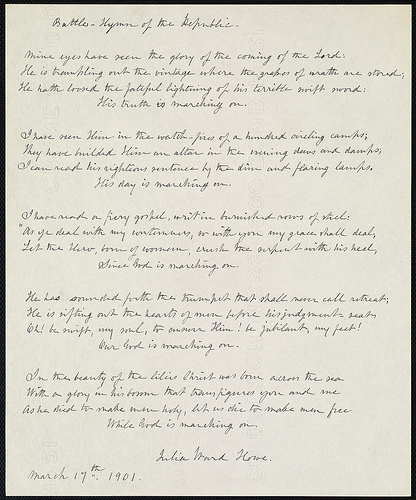 Battle-Hymn of the Republic.
Mine eyes have seen the glory of the coming of the Lord:
He is trampling out the vintage where the grapes of wrath are stored;
He hath loosed the fateful lightning of his terrible swift sword:
His truth is marching on.
I have seen Him in the watch-fires of a hundred circling camps;
They have builded Him an altar in the evening dews and damps;
I can read his righteous sentence by the dim and flaring lamps.
His day is marching on.
I have read a fiery gospel, writ in burnished rows of steel:
"As ye deal with my contemners, so with you my grace shall deal;
Let the Hero, born of woman, crush the serpent with his heel,
Since God is marching on.
He has sounded forth the trumpet that shall never call retreat;
He is sifting out the hearts of men before his judgment-seat;
Oh! be swift, my soul, to answer Him! be jubilant, my feet!
Our God is marching on.
In the beauty of the lilies Christ was born across the sea
With a glory in his bosom that transfigures you and me
As he died to make men holy, let us die to make men free
While God is marching on.
Julia Ward Howe.
March 17th. 1901.